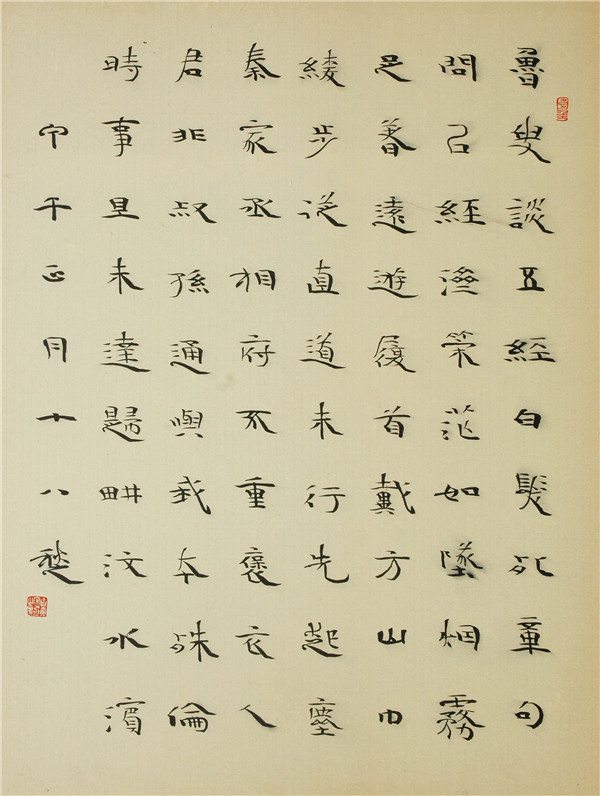 魯叟談五經白髮死章句
問㠯經濟策茫如墜烟霧
足著遠遊履首戴方山巾
緩步從直道未行先起塵
秦家丞相府不重褒衣人
君非叔孫通與我本殊倫
時事且未達歸耕汶水濱
甲午正月十八愁